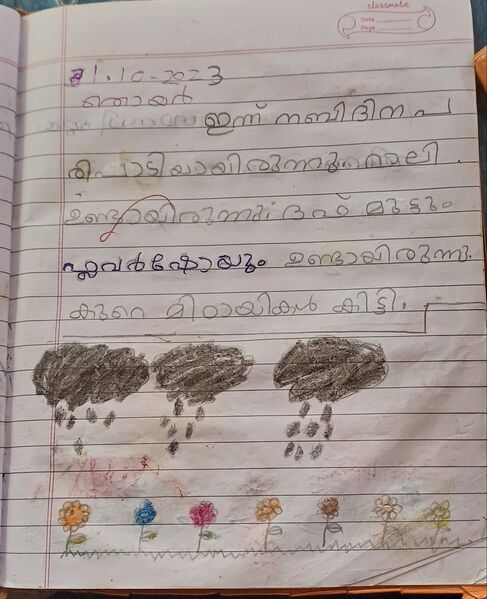 classmate
Date
Page
1.10-2023
ഞായർ
ഇന്ന് നബിദിന പ
രിപാടിയായിരുന്നു റാലി
ഉണ്ടായിരുന്നു. ദഫ് മുട്ടും
ഫ്ലവർഷോയും ഉണ്ടായിരുന്നു.
കുറെ മിഠായികൾ കിട്ടി.